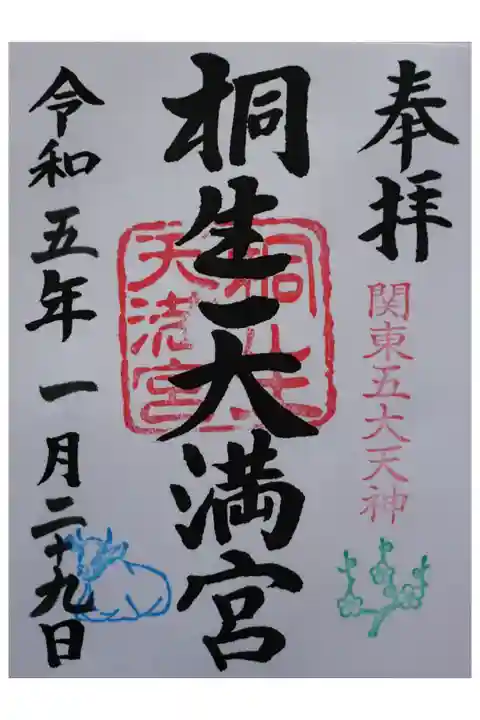 奉拝
関東五大天神
桐生天満宮
桐生
天満宮
令和五年一月二十九日